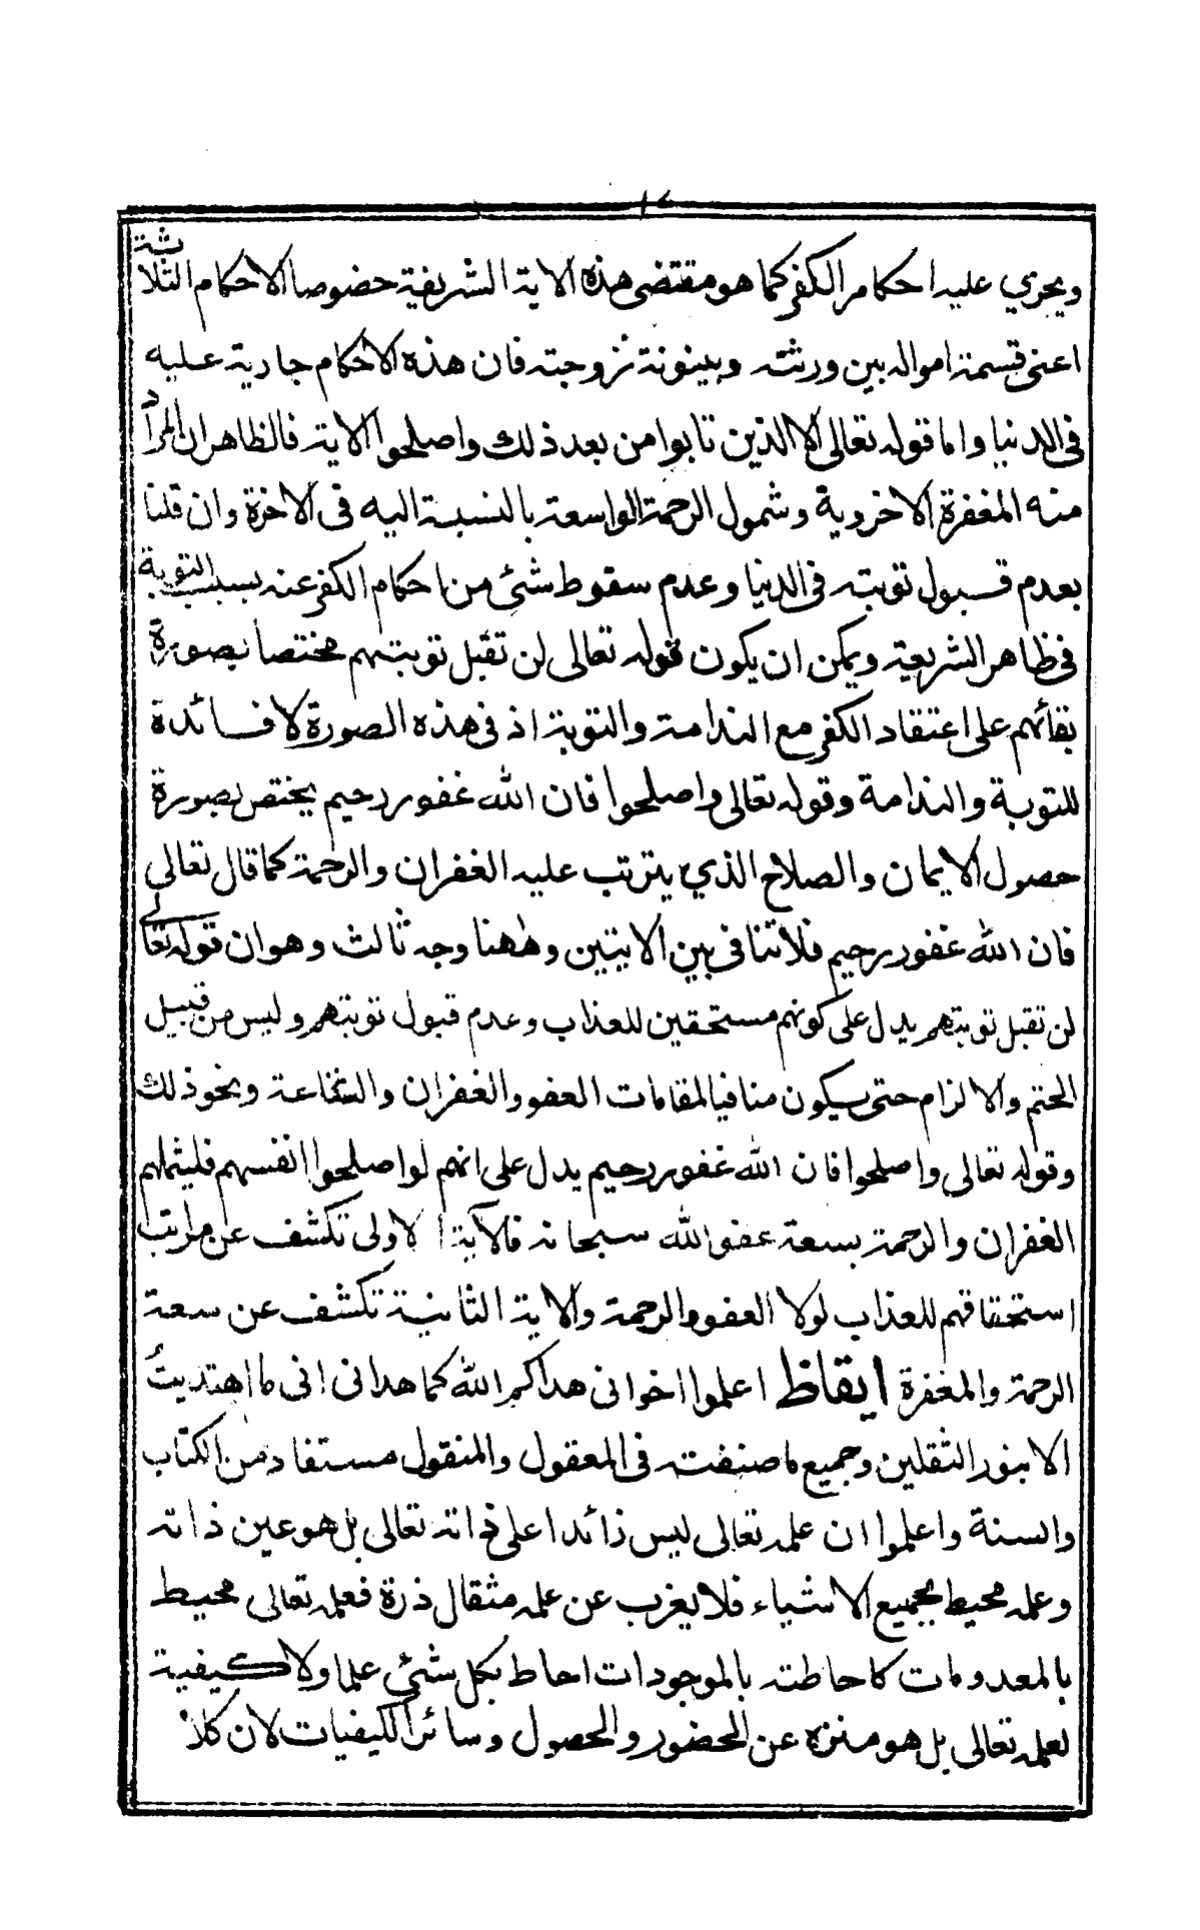 ويجري عليه احكام الكفر كما هو مقتضى هذه الاية الشريفة خصوصا الاحكام الثلاثة
اعنى قسمة امواله بين ورثته وبينونة زوجته فان هذه الاحكام جارية عليه
فى الدنيا واما قوله تعالى الا الذين تابوا من بعد ذلك واصلحوا الاية فالظاهر ان المراد
منه المغفرة الاخروية وشمول الرحمة الواسعة بالنسبة اليه فى الاخرة وان قلنا
بعدم قبول توبته فى الدنيا وعدم سقوط شئ من احكام الكفر عنه بسبب التوبة
فى ظاهر الشريعة ويمكن ان يكون قوله تعالى لن تقبل توبتهم مختصا بصورة
بقائهم على اعتقاد الكفر مع الندامة والتوبة اذ فى هذه الصورة لا فائدة
للتوبة والندامة وقوله تعالى واصلحوا فان الله غفور رحيم يختص بصورة
حصول الايمان والصلاح الذي يترتب عليه الغفران والرحمة كما قال تعالى
فان الله غفور رحيم فلا تنافى بين الايتين وههنا وجه ثالث وهو ان قوله تعالى
لن تقبل توبتهم يدل على كونهم مستحقين للعذاب وعدم قبول توبتهم وليس من قبيل
الحتم والالزام حتى يكون منافيا لمقامات العفو والغفران والشفاعة ونحو ذلك
وقوله تعالى واصلحوا فان الله غفور رحيم يدل على انهم لو اصلحوا انفسهم فليشملهم
الغفران والرحمة بسعة عفو الله سبحانه فالآية الاولى تكشف عن مراتب
استحقاقهم للعذاب لولا العفو والرحمة والاية الثانية تكشف عن سعة
الرحمة والمغفرة ايقاظ اعلموا اخوانى هداكم الله كما هدانى انى ما اهتديتُ
الا بنور الثقلين وجميع ما صنفت فى المعقول والمنقول مستفاد من الكتاب
والسنة واعلموا ان علمه تعالى ليس زائدا على ذاته تعالى بل هو عين ذاته
وعلمه محيط بجميع الاشياء فلا يغرب عن علمه مثقال ذرة فعلمه تعالى محيط
بالمعدومات كاحاطته بالموجودات احاط بكل شئ علما ولا كيفية
لعلمه تعالى بل هو منزه عن الحضور والحصول وسائر الكيفيات لان كلا